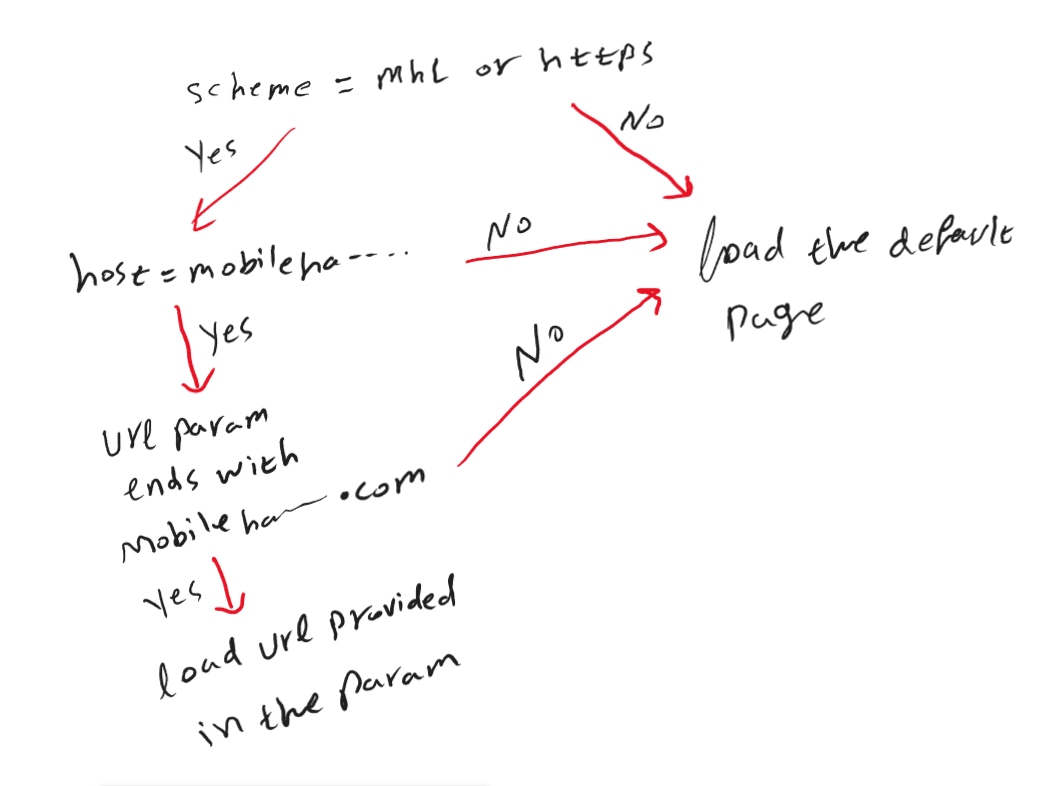 scheme = mhl or https
Yes
No
host = mobileha-----
No
load the default
page
Yes
No
url param
ends with
mobileha .com
Yes
load url provided
in the param